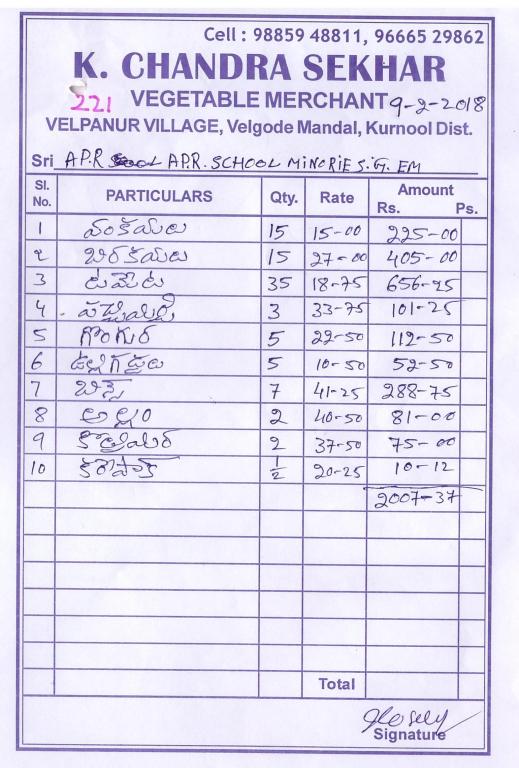 Cell : 98859 48811, 96665 29862
K. CHANDRA SEKHAR
221 VEGETABLE MERCHANT 9-2-2018
VELPANUR VILLAGE, Velgode Mandal, Kurnool Dist.
Sri A.P.R A.P.R. SCHOOL MINORIES.G. EM
Sl. No. PARTICULARS Qty. Rate Amount Rs. Ps.
1 వంకాయలు 15 15-00 225-00
2 బీరకాయలు 15 27-00 405-00
3 టమోట 35 18-75 656-25
4 పచ్చిమిర్చి 3 33-75 101-25
5 గోంగుర 5 22-50 112-50
6 ఉల్లిగడ్డలు 5 10-50 52-50
7 బీన్స్ 7 41-25 288-75
8 అల్లం 2 40-50 81-00
9 కొత్తిమీర 2 37-50 75-00
10 కరేపాక్ 1/2 20-25 10-12
2007-37
Total
Signature